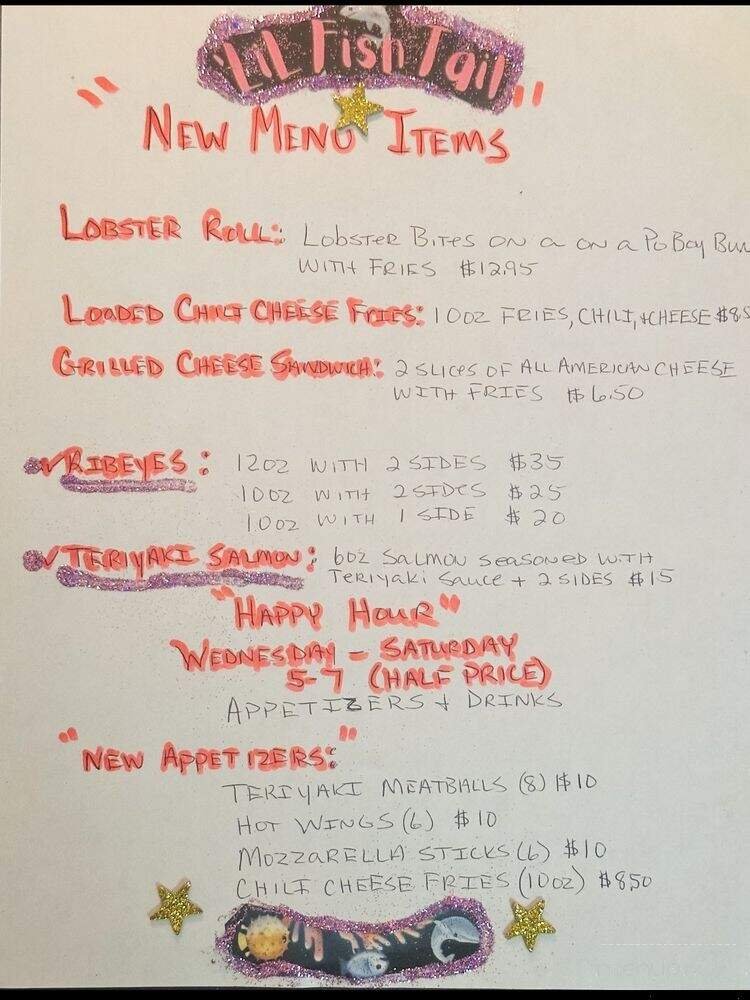 'Lil Fish Tail
"New Menu Items"
Lobster Roll: Lobster Bites on a on a Po Boy Bun
with Fries $12.95
Loaded Chili Cheese Fries: 10oz Fries, Chili, + Cheese $8.5
Grilled Cheese Sandwich: 2 slices of All American Cheese
with Fries $6.50
✓Ribeyes: 12oz with 2 sides $35
10oz with 2 sides $25
10oz with 1 side $20
✓Teriyaki Salmon: 6oz Salmon seasoned with
Teriyaki Sauce + 2 sides $15
"Happy Hour"
Wednesday - Saturday
5-7 (Half Price)
Appetizers + Drinks
"New Appetizers:"
Teriyaki Meatballs (8) $10
Hot Wings (6) $10
Mozzarella Sticks (6) $10
Chili Cheese Fries (10oz) $8.50